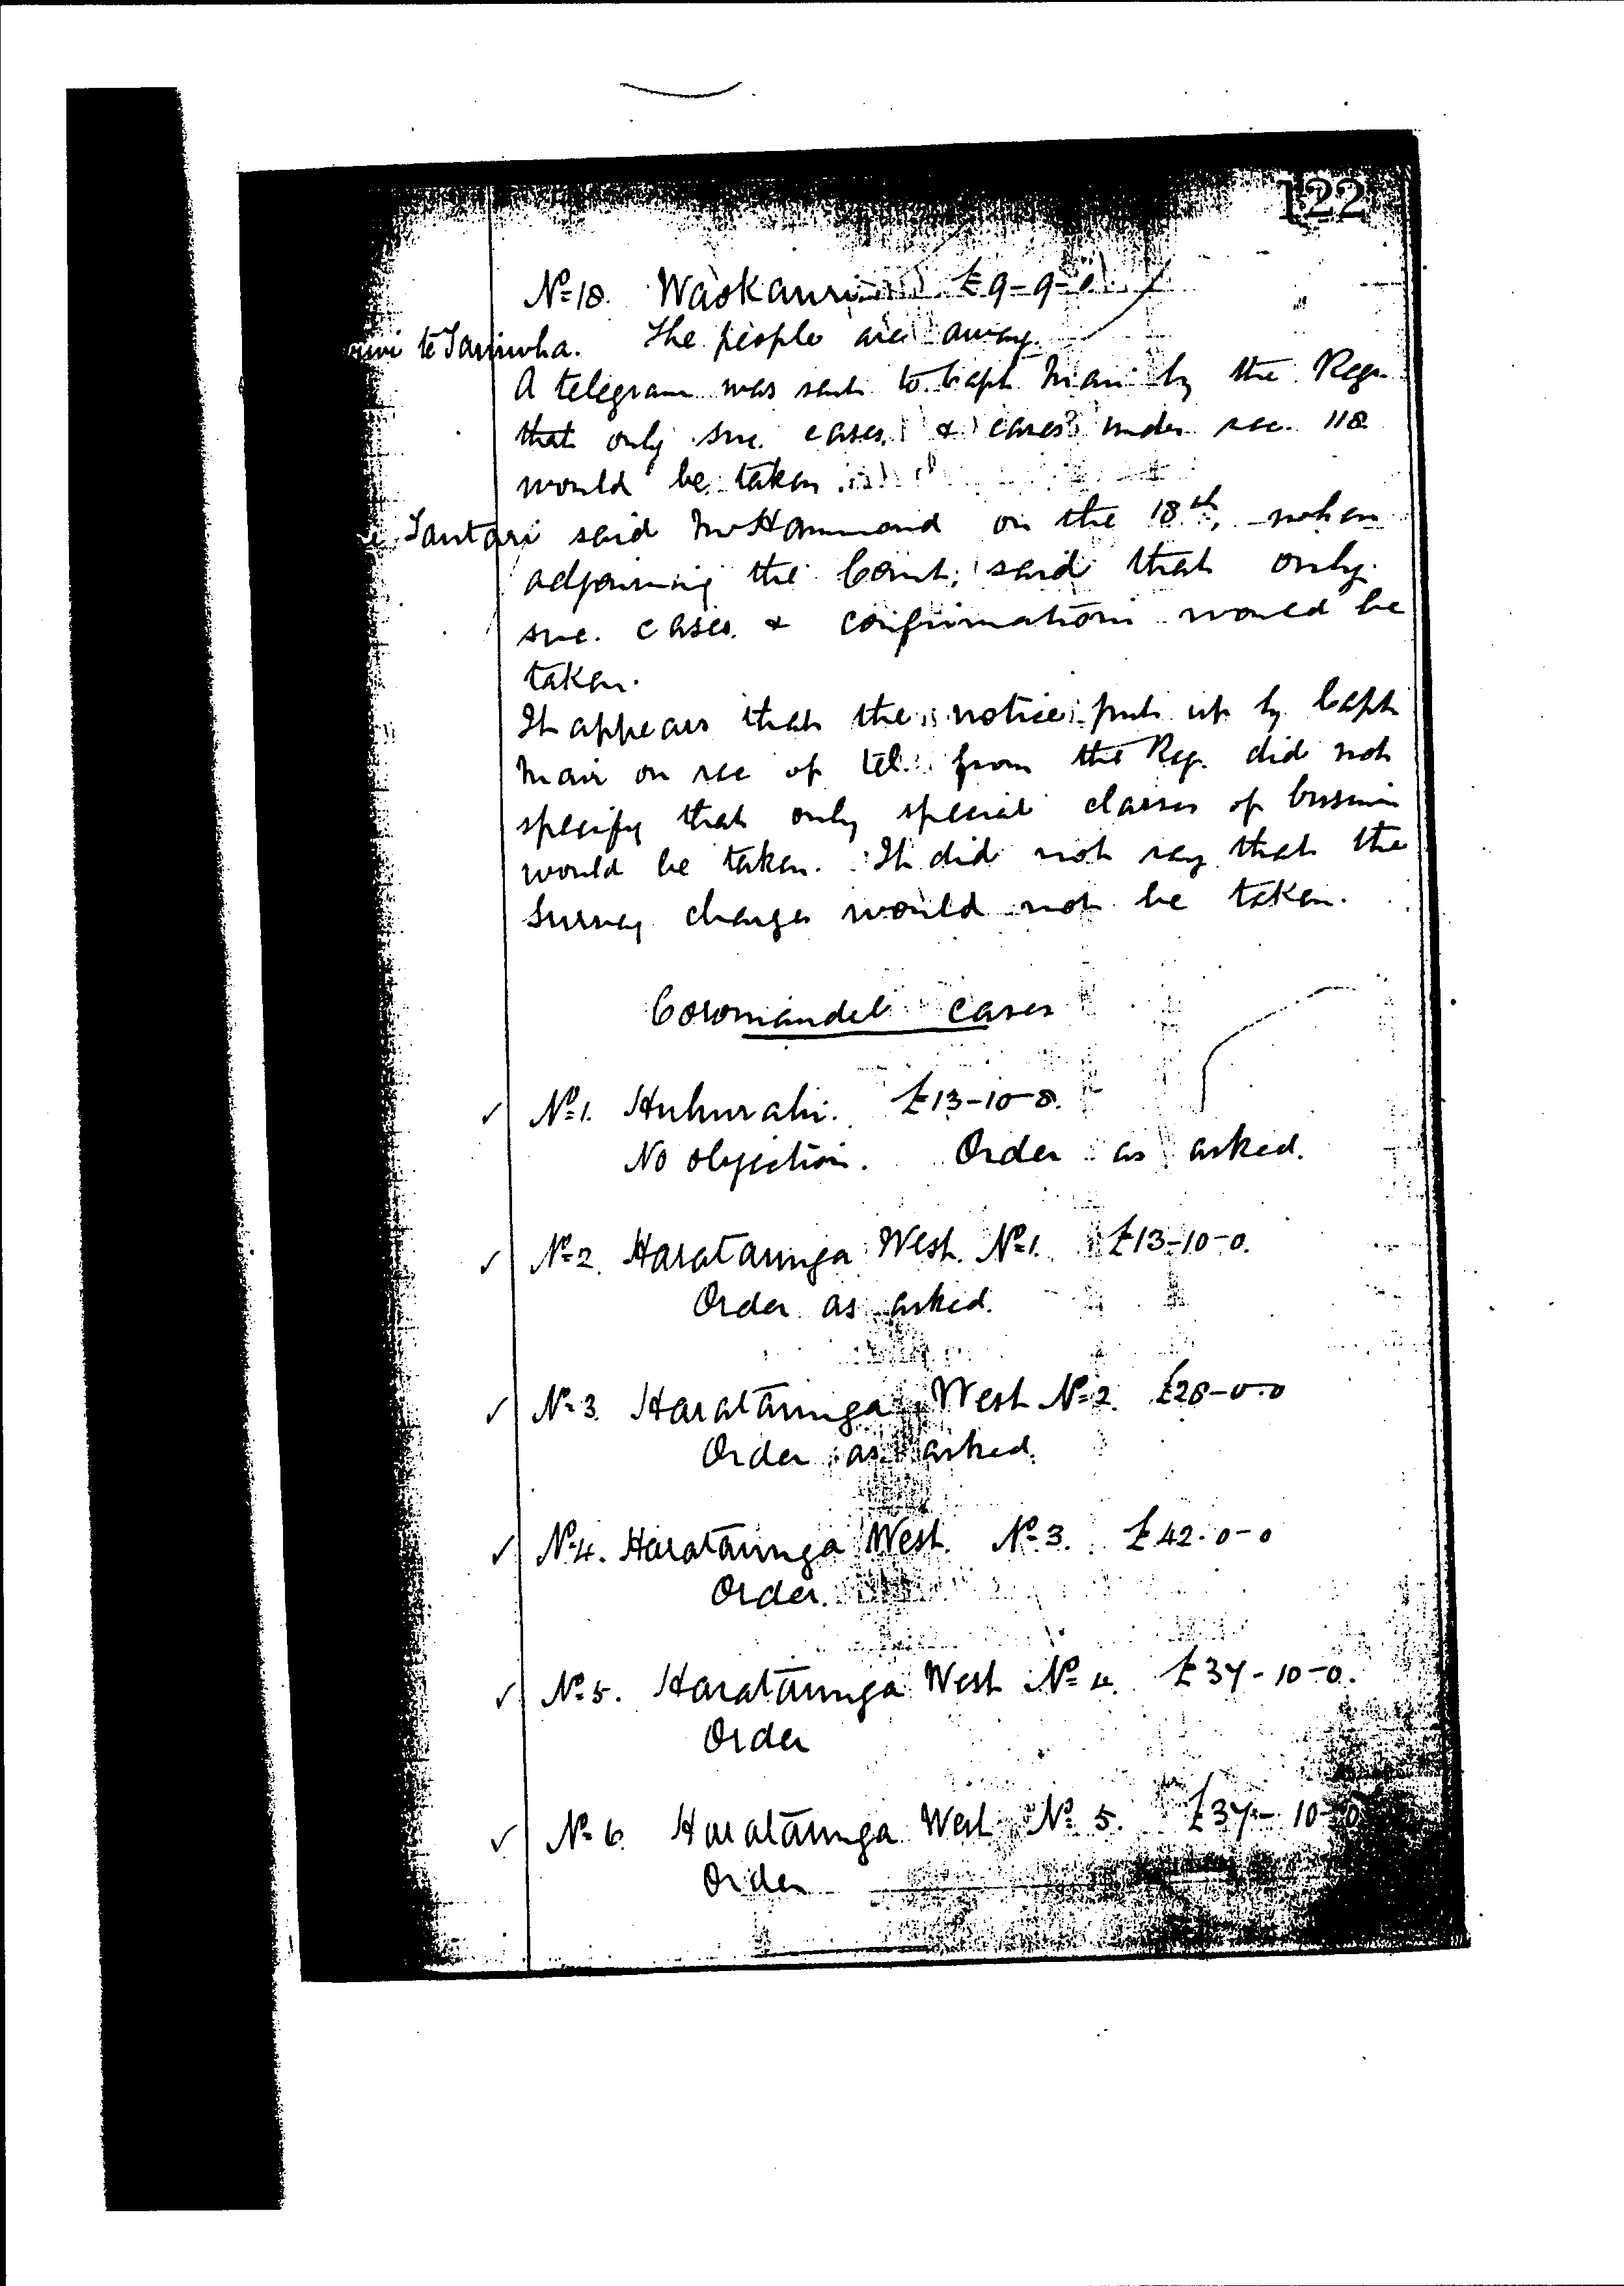 122
No 18. Waokauri £9-9-0
te Taniwha. The people are away.
A telegram was sent to Capt Mair by the Regr
that only suc. cases & cases under sec. 118
would be taken
Tautari said Mr Hammond on the 18th, when
adjourning the Court, said that only
suc. cases & confirmations would be
taken.
It appears that the notice put up by Capt
Mair on rec of tel. from the Reg. did not
specify that only special classes of business
would be taken. It did not say that the
survey charges would not be taken.
Coromandel cases
✓ No 1. Huhurahi. £13-10-8.
No objection. Order as asked.
✓ No 2. Harataunga West No 1. £13-10-0.
Order as asked.
✓ No 3. Harataunga West No 2. £28-0-0
Order as asked.
✓ No 4. Harataunga West. No 3. £42-0-0
Order.
✓ No 5. Harataunga West No 4. £37-10-0.
Order
✓ No 6. Harataunga West No 5. £37-10-0
Order